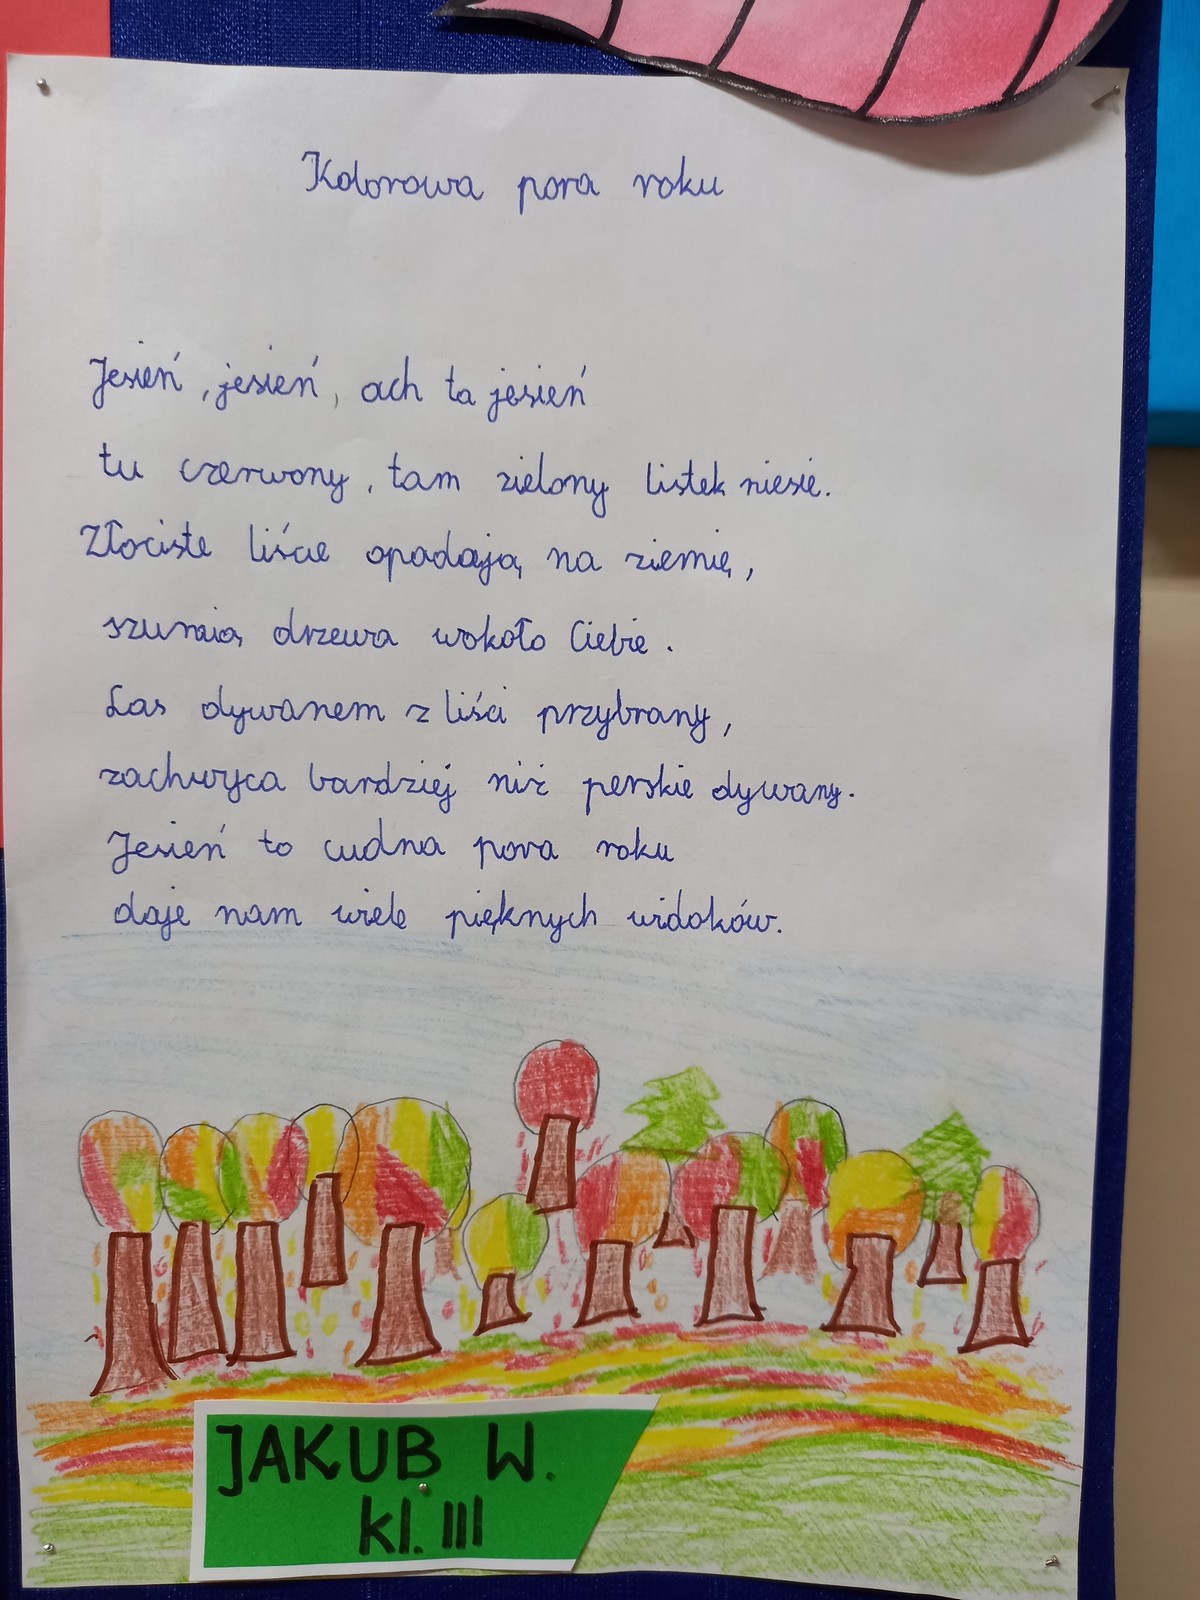 Kolorowa pora roku
Jesień, jesień, ach ta jesień
tu czerwony, tam zielony listek niesie.
Złociste liście opadają na ziemię,
szumią drzewa wokoło Ciebie.
Las dywanem z liści przybrany,
zachwyca bardziej niż perskie dywany.
Jesień to cudna pora roku
daje nam wiele pięknych widoków.
JAKUB W.
kl. III